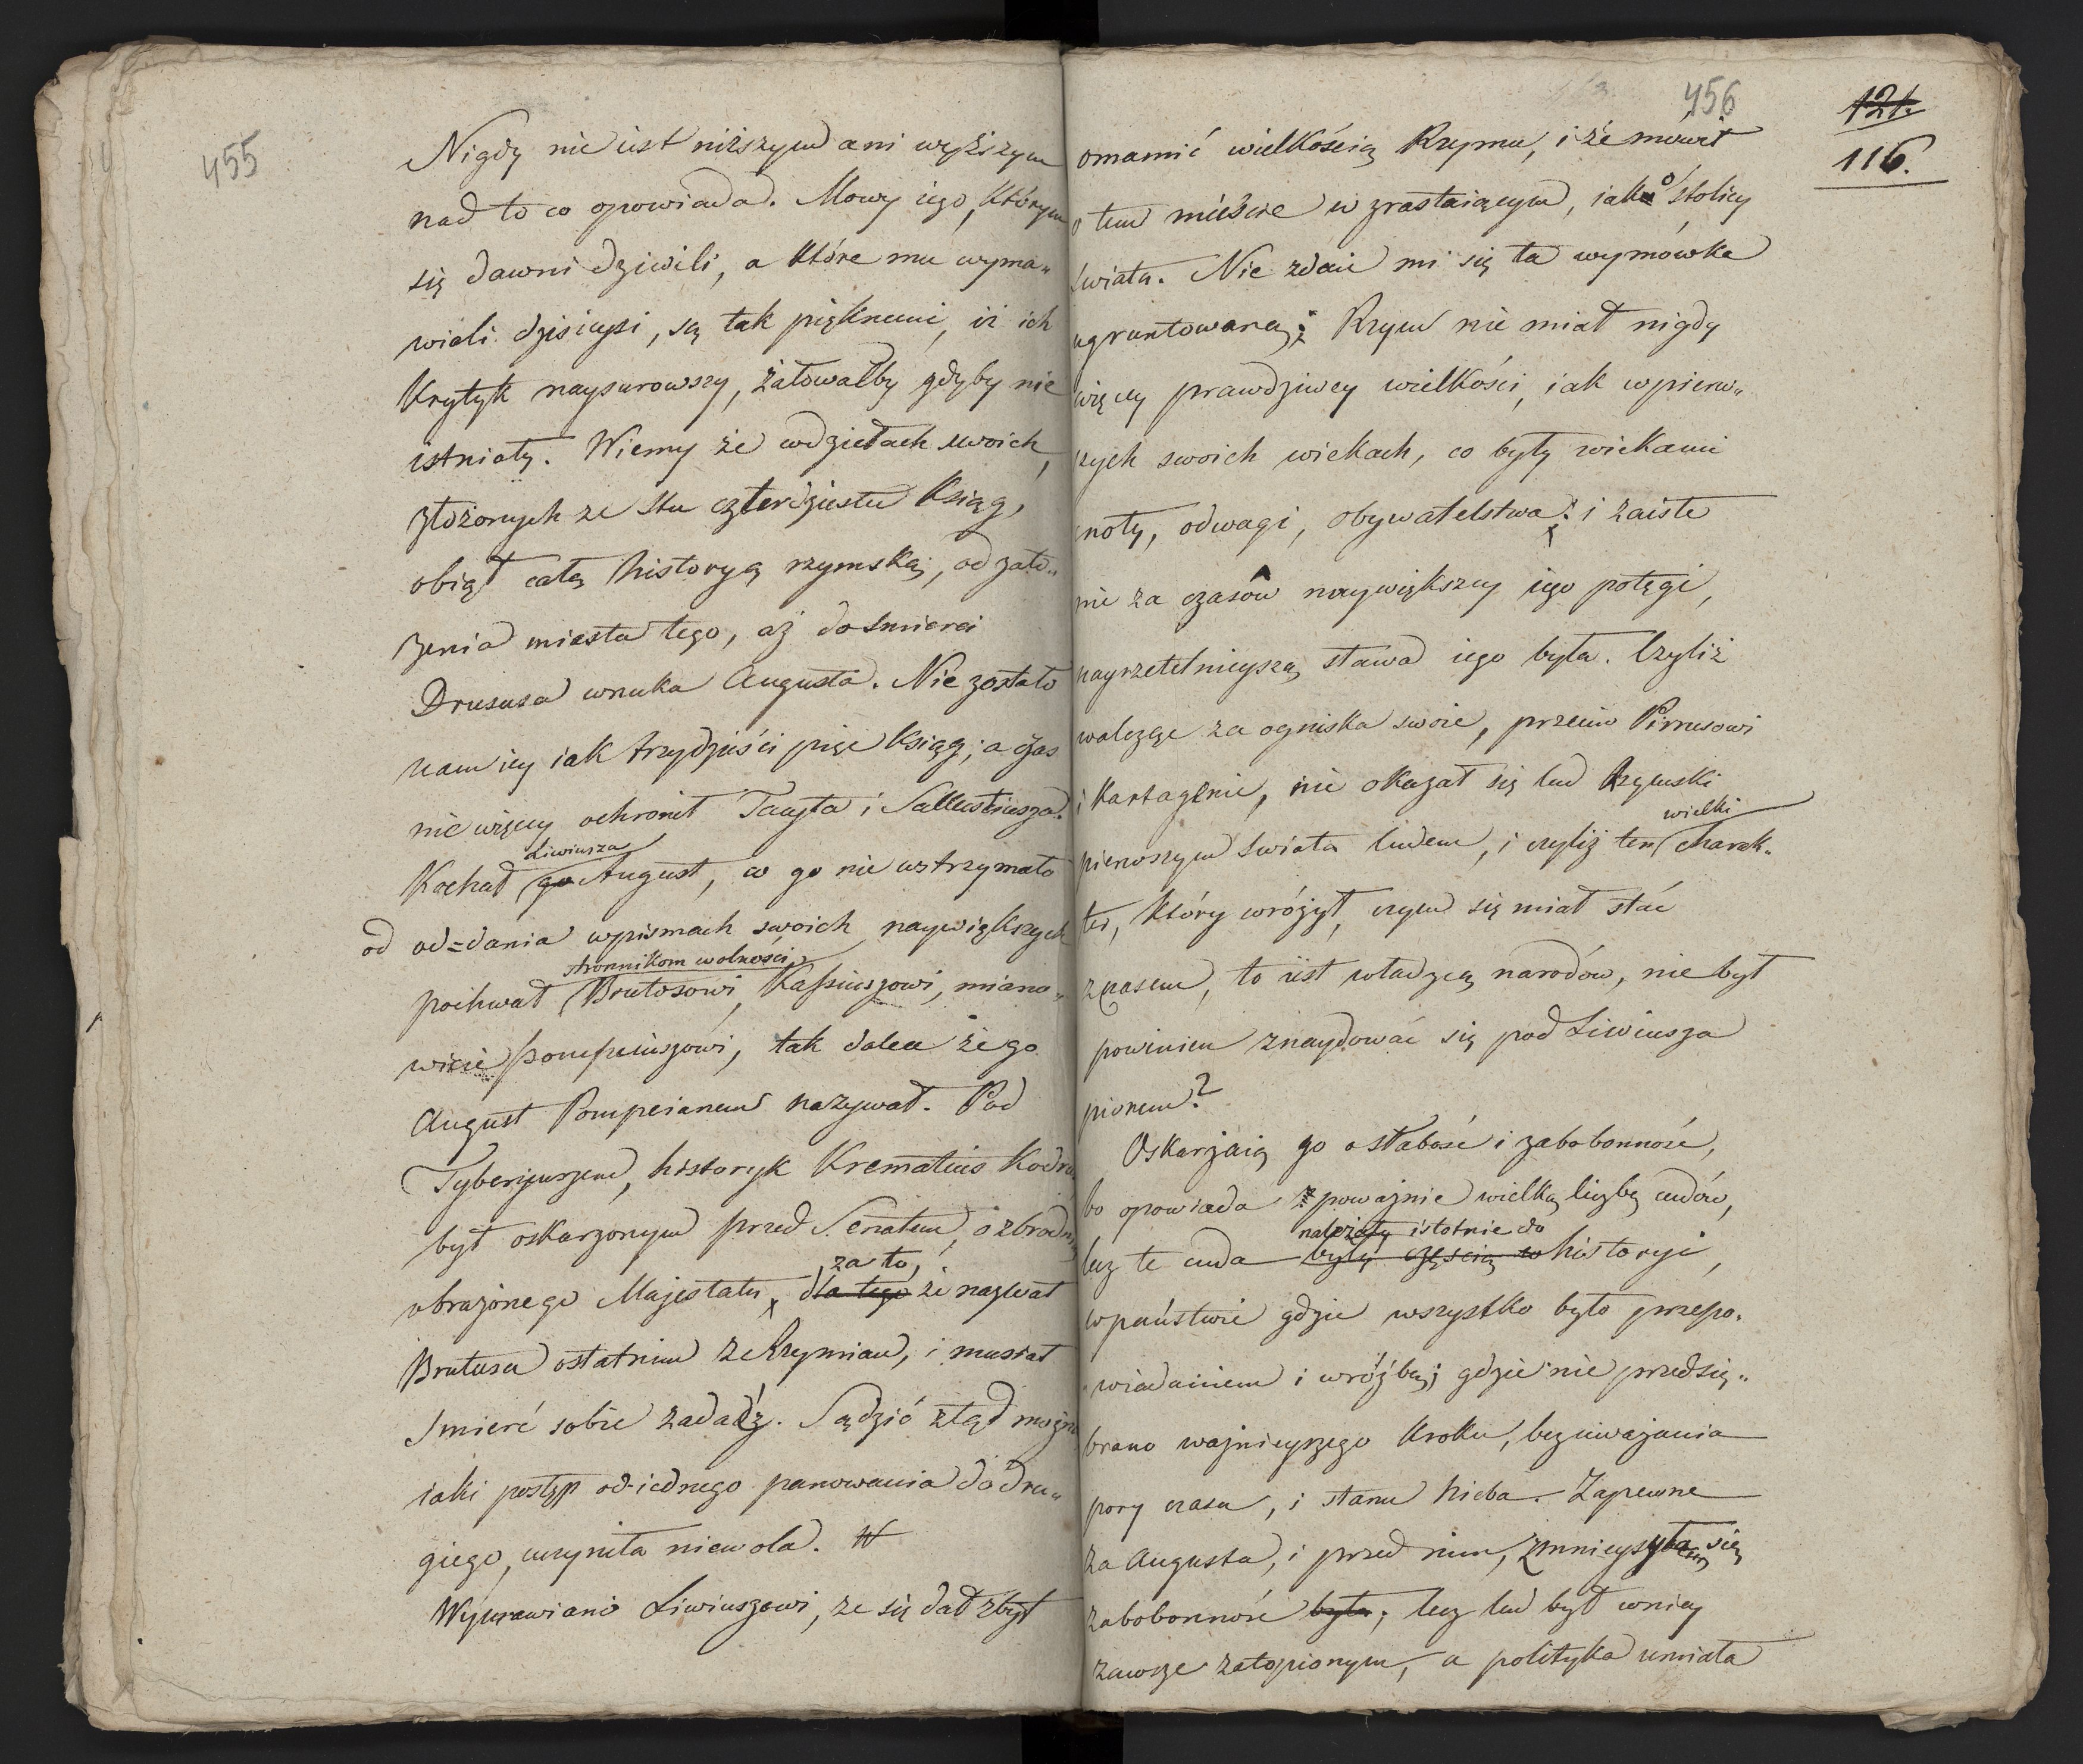 455
Nigdy nie iest niższym ani wyższym
nad to co opowiada. Mowy iego, którym
się dawni dziwili, a które mu wyma„
wieli dzisieysi, są tak pięknemi, iż ich
Krytyk naysurowszy, żałowałby gdyby nie
istniały. Wiemy że w dziełach swoich,
złożonych ze stu czterdziestu Ksiąg,
obiął całą historyą rzymską, od zało„
żenia miasta tego, aż do śmierci
Drususa wnuka Augusta. Nie zostało
nam iey iak trzydzieści pięć Ksiąg; a czas
nie więcey ochronił Tacyta i Sallustiusza.
Liwiusza
Kochał go August, co go nie wstrzymało
od od=dania w pismach swoich naywiększych
stronnikom wolności,
pochwał Brutosowi, Kassiuszowi, miano„
wicie Pompeiuszowi, tak dalece że go
August Pompeianem nazywał. Pod
Tyberyuszem, historyk Krematius Kodrus
był oskarzonym przed Senatem, o zbrodnię
za to,
obrażonego Majestatu, dla tego że nazwał
Brutusa ostatnim z Rzymian, i musiał
śmierć sobie zadadź. Sądzić ztąd można
iaki postęp od iednego panowania do dru„
giego, uczyniła niewola. W
Wymawiano Liwiuszowi, że się dał zbyt
456
121.
116.
omamić wielkością Rzymu, i że mówił
o tem mieście wzrastaiącym, iak o stolicy
świata. Nie zdaie mi się ta wymówka
ugruntowaną; Rzym nie miał nigdy
więcey prawdziwey wielkości, iak w pierw„
szych swoich wiekach, co były wiekami
cnoty, odwagi, obywatelstwa; i zaiste
nie za czasów naywiększey iego potęgi,
nayrzetelnieyszą sława iego była. Czyliż
walcząc za ogniska swoie, przeciw Pirrusowi
i Kartagenie, nie okazał się lud Rzymski
wielki
pierwszym świata ludem, i czyliż ten charak„
ter, który wróżył, czym się miał stać
z czasem, to iest władzcą narodów, nie był
powinien znaydować się pod Liwiusza
piórem?
Oskarżaią go o słabość i zabobonność,
bo opowiada z powagnie wielką liczbę cudów,
należały istotnie do
lecz te cuda były częścią w historyi,
w państwie gdzie wszystko było przepo„
wiadaniem i wróżbą; gdzie nie przedsię„
brano ważnieyszego kroku, bez uważania
pory czasu, i stanu nieba. Zapewne
za Augusta, i przed nim, zmnieyszyła się
zabobonność była; lecz lud był w niey
zawsze zatopionym, a polityka umiała